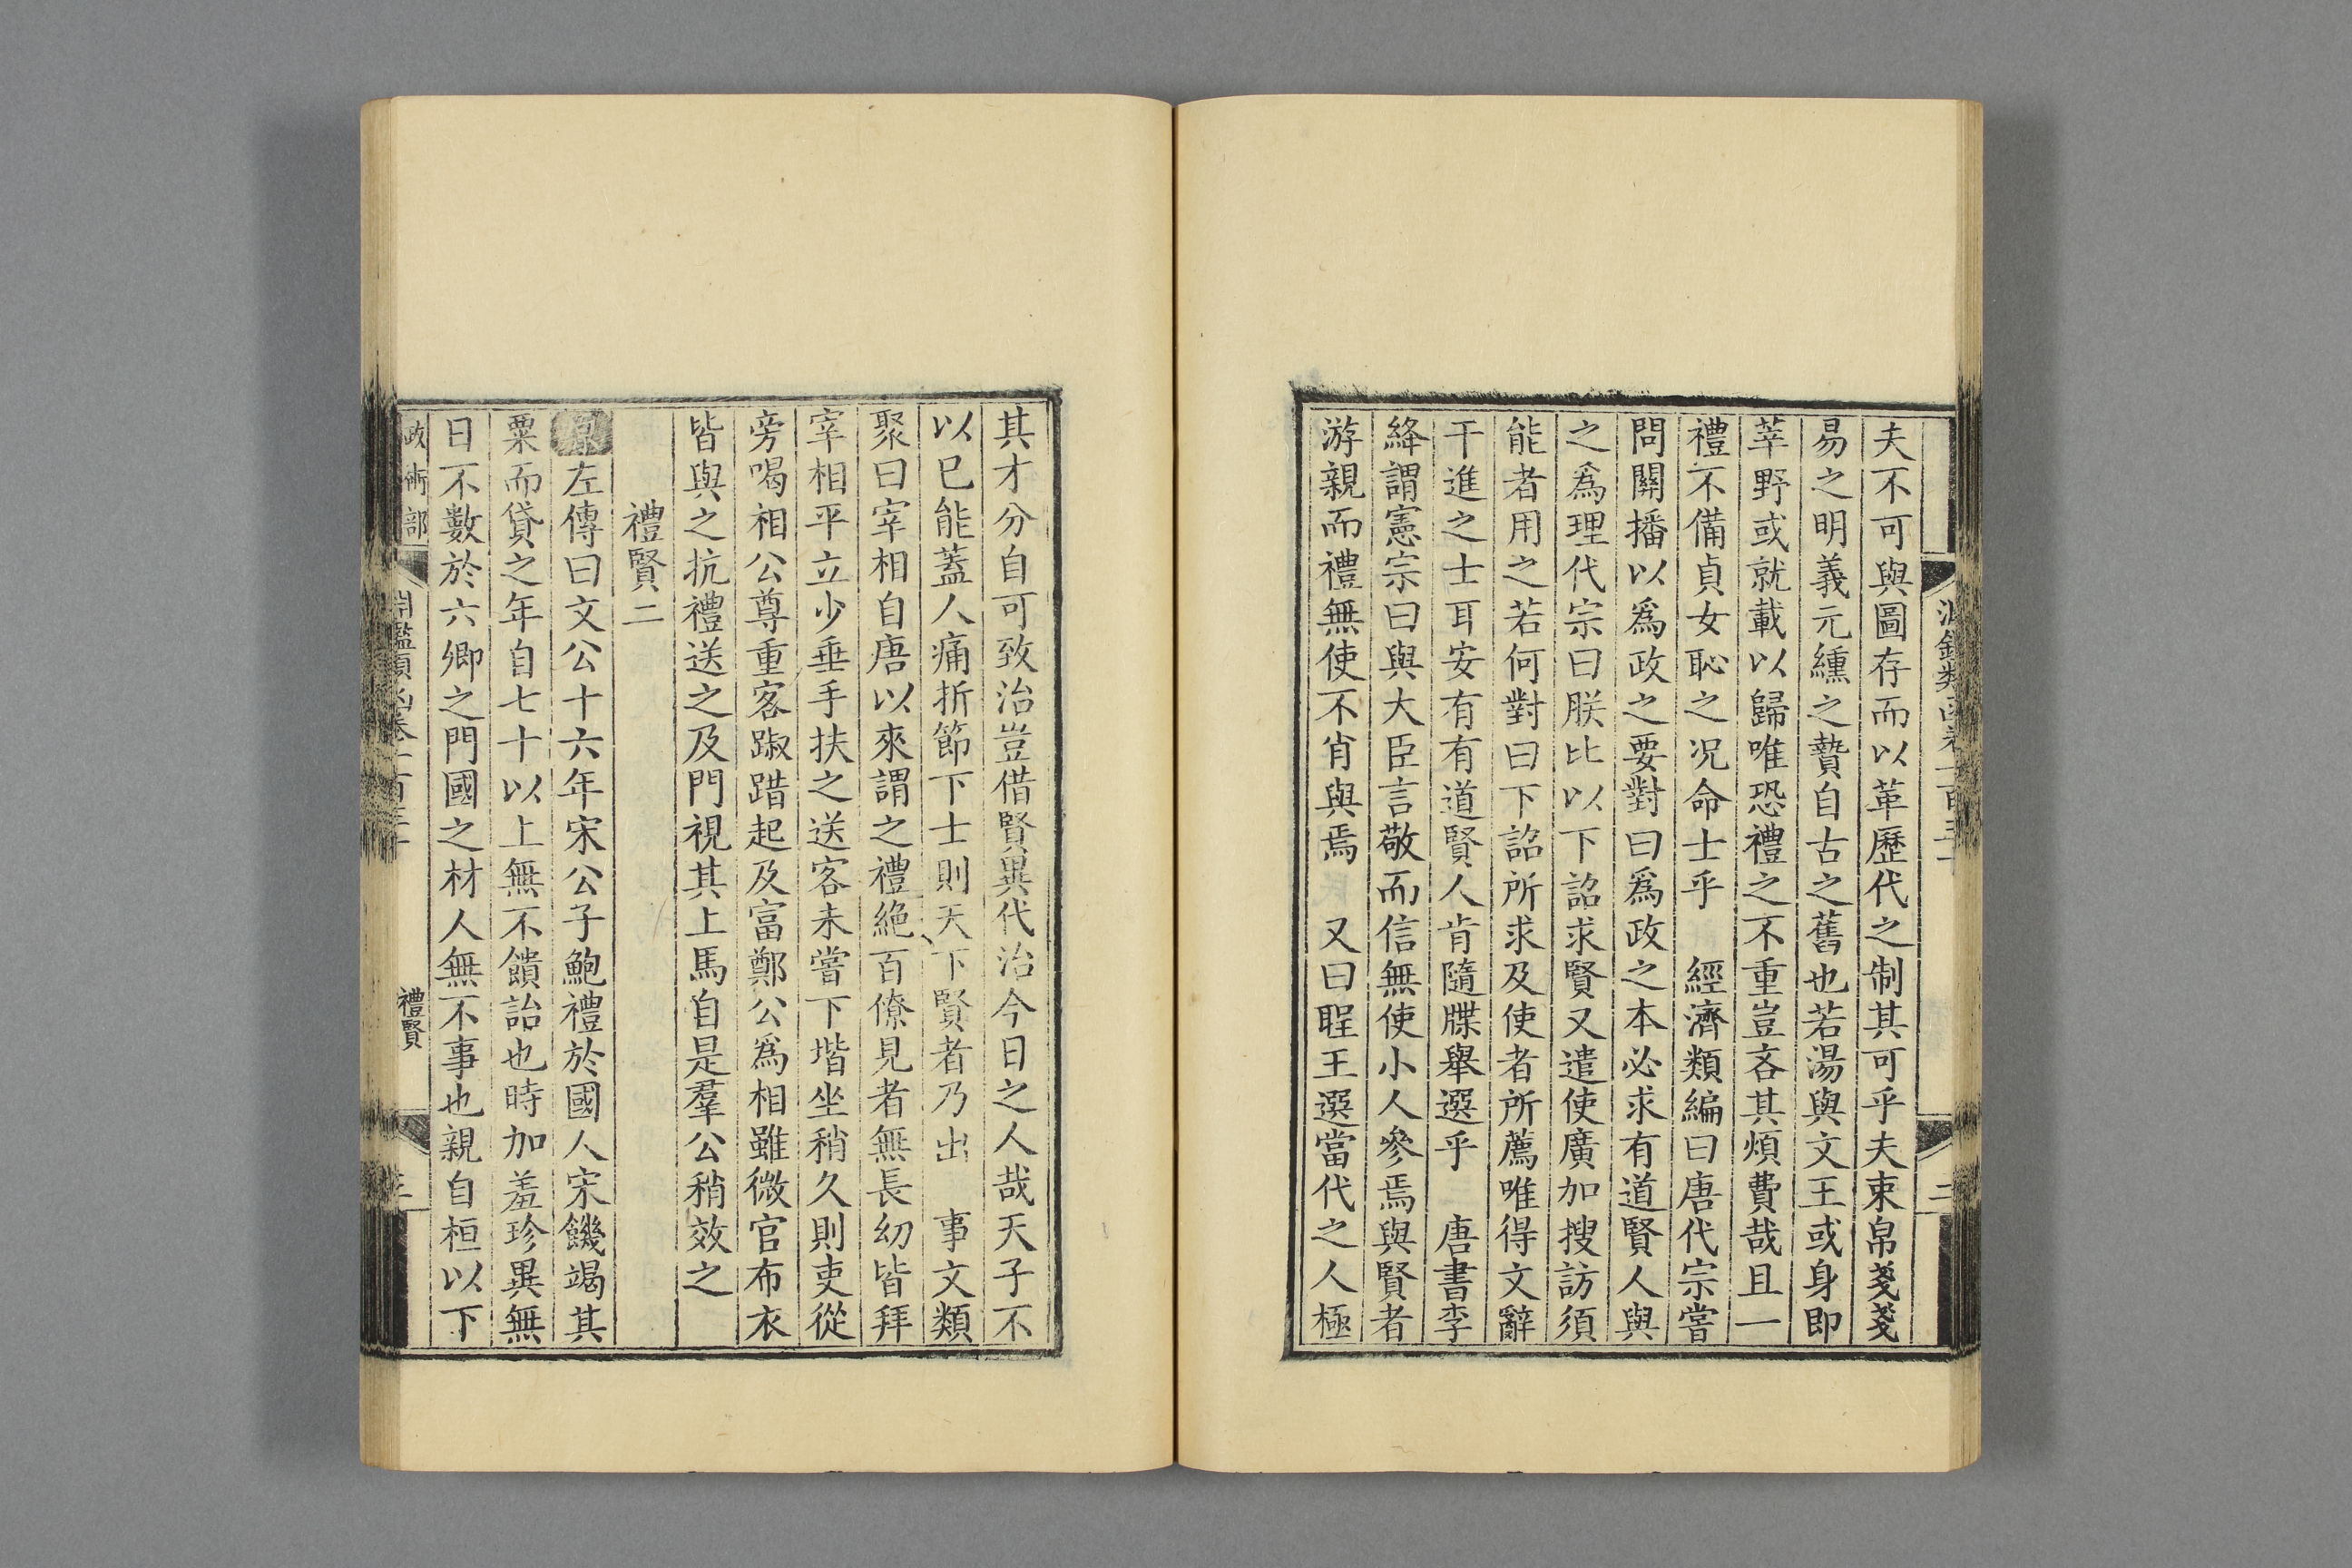 夫不可與圖存而以革歷代之制其可乎夫束帛戔戔
易之明義元纁之贄自古之舊也若湯與文王或身即
莘野或就載以歸唯恐禮之不重豈吝其煩費哉且一
禮不備貞女恥之况命士乎 經濟類編曰唐代宗嘗
問關播以爲政之要對曰爲政之本必求有道賢人與
之爲理代宗曰朕比以下詔求賢又遣使廣加搜訪須
能者用之若何對曰下詔所求及使者所薦唯得文辭
干進之士耳安有有道賢人肯隨牒舉選乎 唐書李
絳謂憲宗曰與大臣言敬而信無使小人參焉與賢者
游親而禮無使不肖與焉 又曰聖王選當代之人極
其才分自可致治豈借賢異代治今日之人哉天子不
以已能蓋人痛折節下士則天下賢者乃出 事文類
聚曰宰相自唐以來謂之禮絶百僚見者無長幼皆拜
宰相平立少垂手扶之送客未嘗下堦坐稍久則吏從
旁喝相公尊重客踧踖起及富鄭公爲相雖微官布衣
皆與之抗禮送之及門視其上馬自是羣公稍效之
禮賢二
原左傳曰文公十六年宋公子鮑禮於國人宋饑竭其
粟而貸之年自七十以上無不饋詒也時加羞珍異無
日不數於六卿之門國之材人無不事也親自桓以下
政術部
禮賢